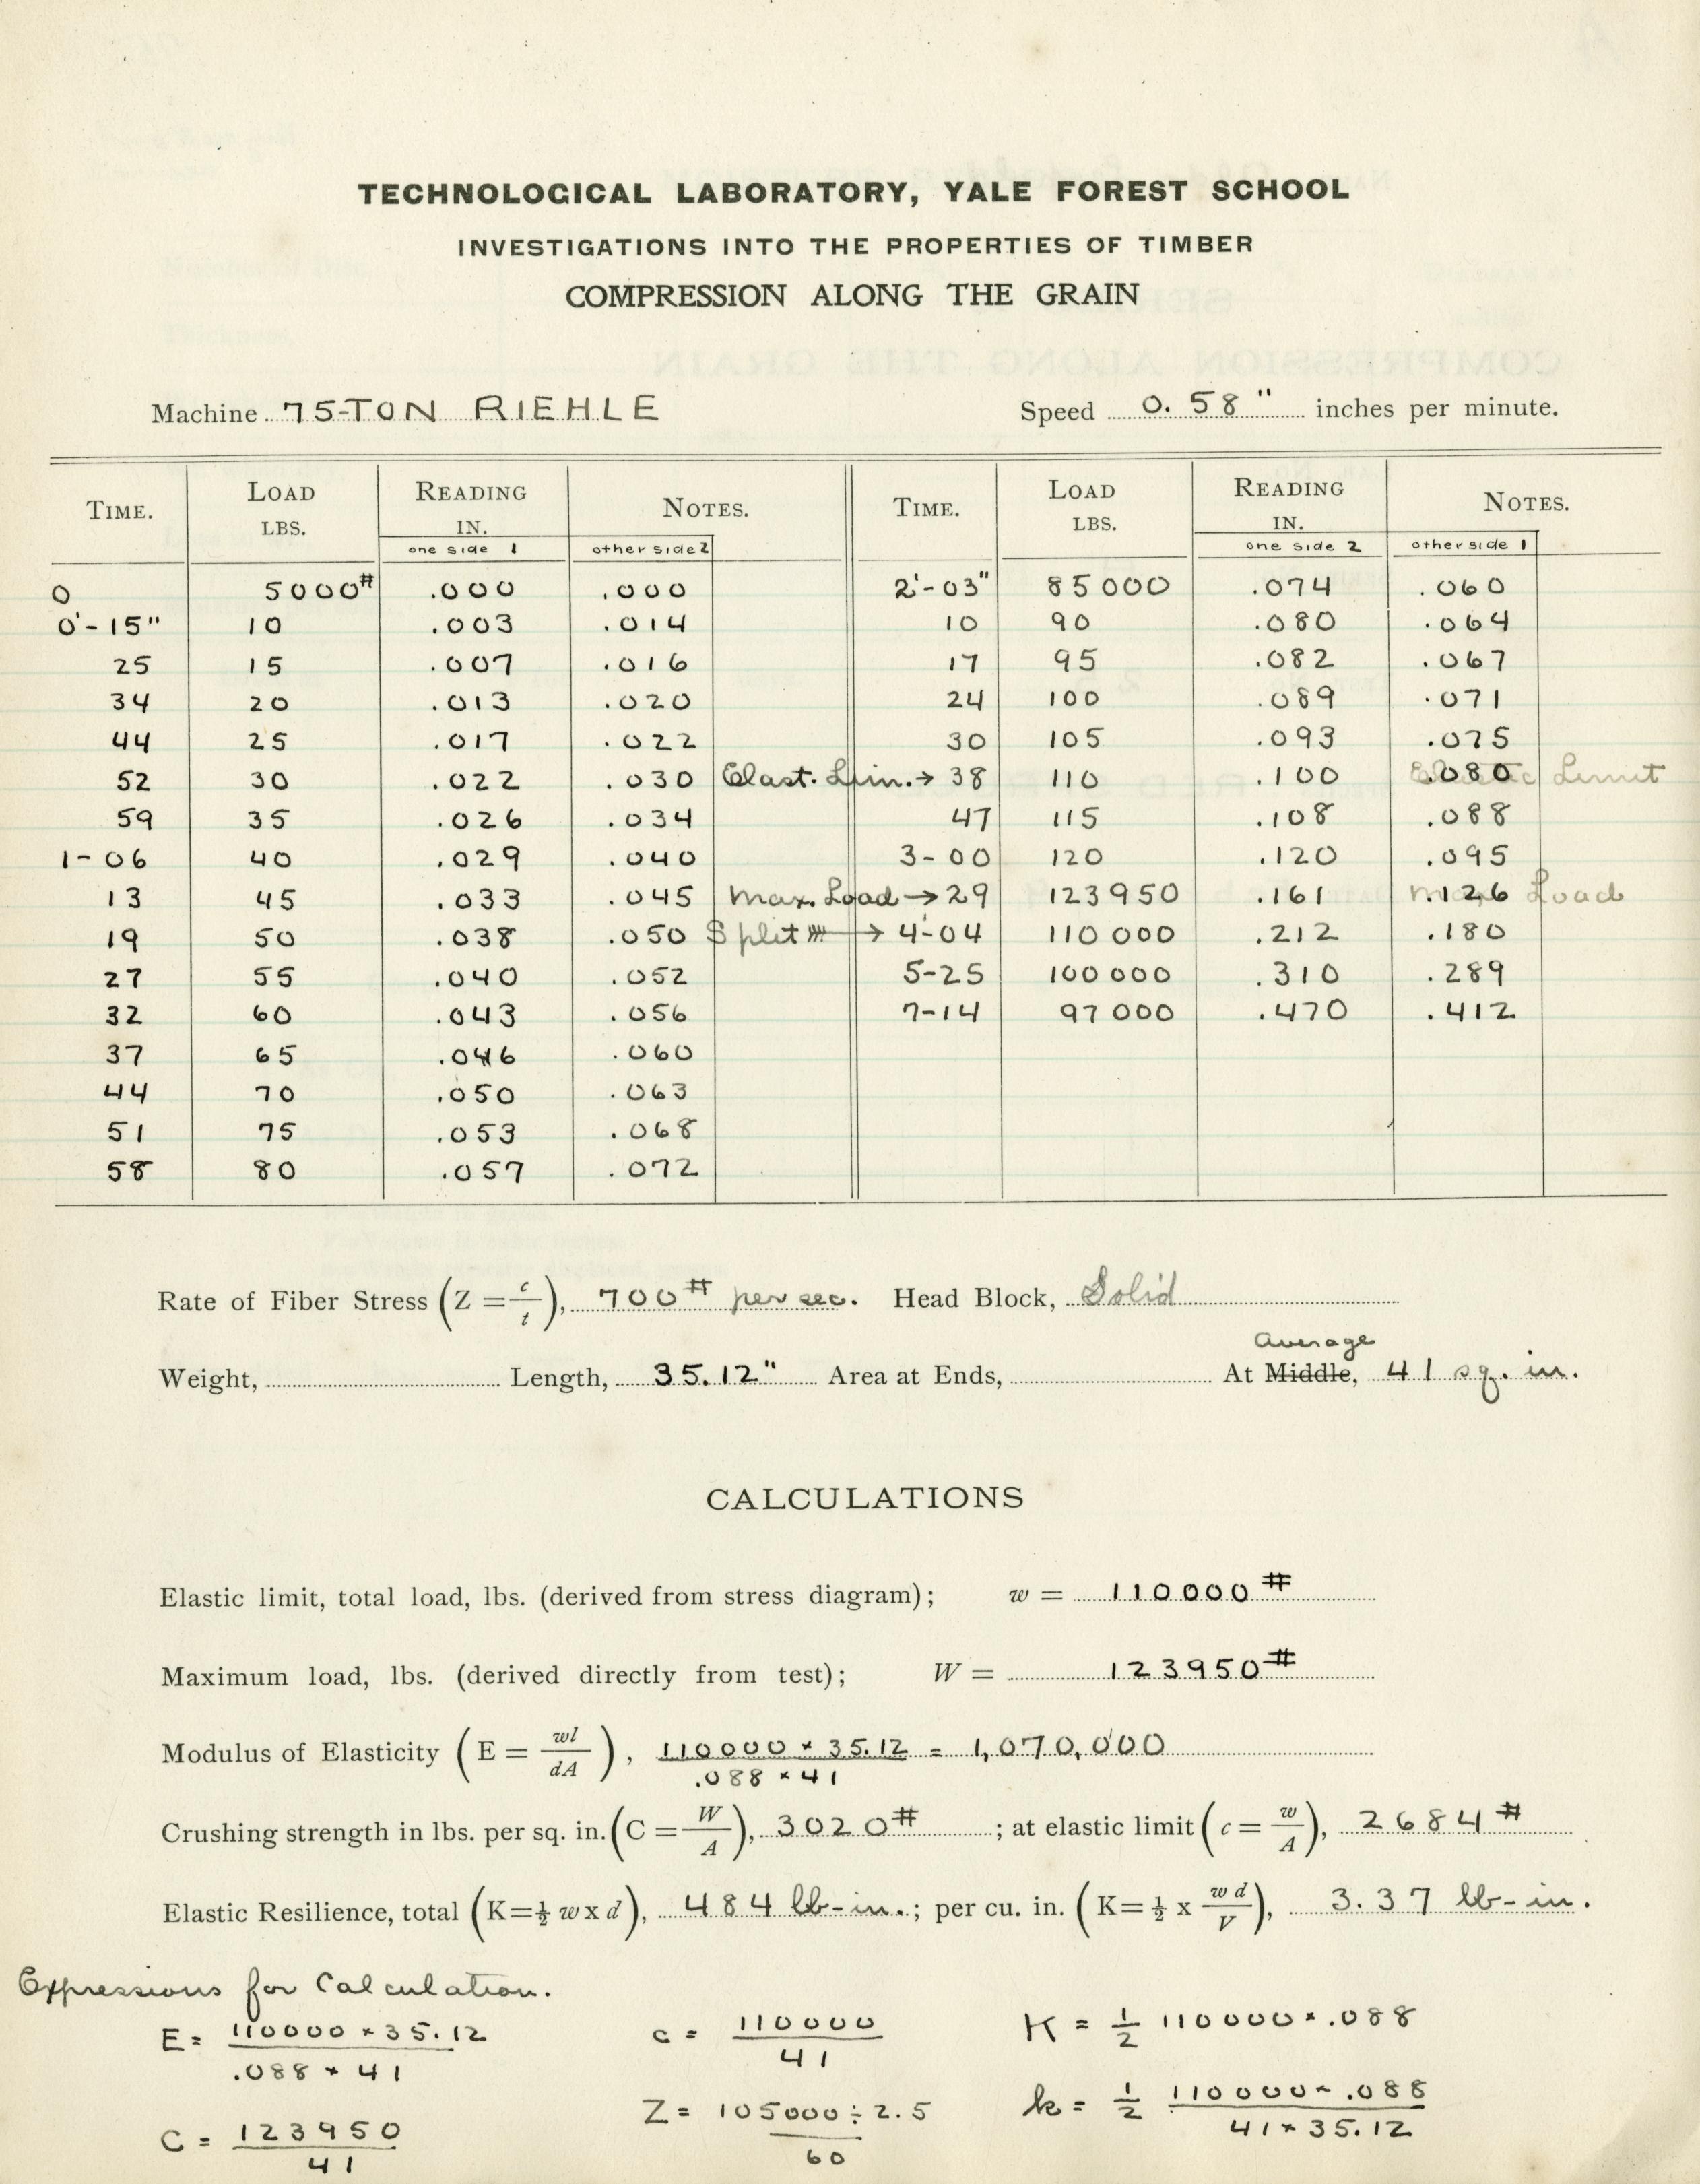 TECHNOLOGICAL LABORATORY, YALE FOREST SCHOOL
INVESTIGATIONS INTO THE PROPERTIES OF TIMBER
COMPRESSION ALONG THE GRAIN
Machine 75-TON RIEHLE Speed 0.58" inches per minute.
TIME. LOAD LBS. READING IN. NOTES. TIME. LOAD LBS. READING IN. NOTES.
one side 1 other side 2 one side 2 other side 1
0 5000# .000 .000 2'-03" 85000 .074 .060
0'-15" 10 .003 .014 10 90 .080 .064
25 15 .007 .016 17 95 .082 .067
34 20 .013 .020 24 100 .089 .071
44 25 .017 .022 30 105 .093 .075
52 30 .022 .030 Elast. Lim. → 38 110 .100 .080 Elastic Limit
59 35 .026 .034 47 115 .108 .088
1-06 40 .029 .040 3-00 120 .120 .095
13 45 .033 .045 Max. Load → 29 123950 .161 .126 Max. Load
19 50 .038 .050 Split → 4-04 110000 .212 .180
27 55 .040 .052 5-25 100000 .310 .289
32 60 .043 .056 7-14 97000 .470 .412
37 65 .046 .060
44 70 .050 .063
51 75 .053 .068
58 80 .057 .072
Rate of Fiber Stress (Z = c/t), 700# per sec. Head Block, Solid
Average
Weight, Length, 35.12" Area at Ends, At Middle, 41 sq. in.
CALCULATIONS
Elastic limit, total load, lbs. (derived from stress diagram); w = 110000#
Maximum load, lbs. (derived directly from test); W = 123950#
Modulus of Elasticity (E = wl/dA), 110000 × 35.12 / .088 × 41 = 1,070,000
Crushing strength in lbs. per sq. in. (C = W/A), 3020# ; at elastic limit (c = w/A), 2684#
Elastic Resilience, total (K=½ w x d), 484 lb-in.; per cu. in. (K=½ x w d/V), 3.37 lb-in.
Expressions for Calculation.
E = 110000 × 35.12 / .088 × 41 c = 110000 / 41 K = 1/2 110000 × .088
C = 123950 / 41 Z = 105000 ÷ 2.5 / 60 k = 1/2 110000 × .088 / 41 × 35.12